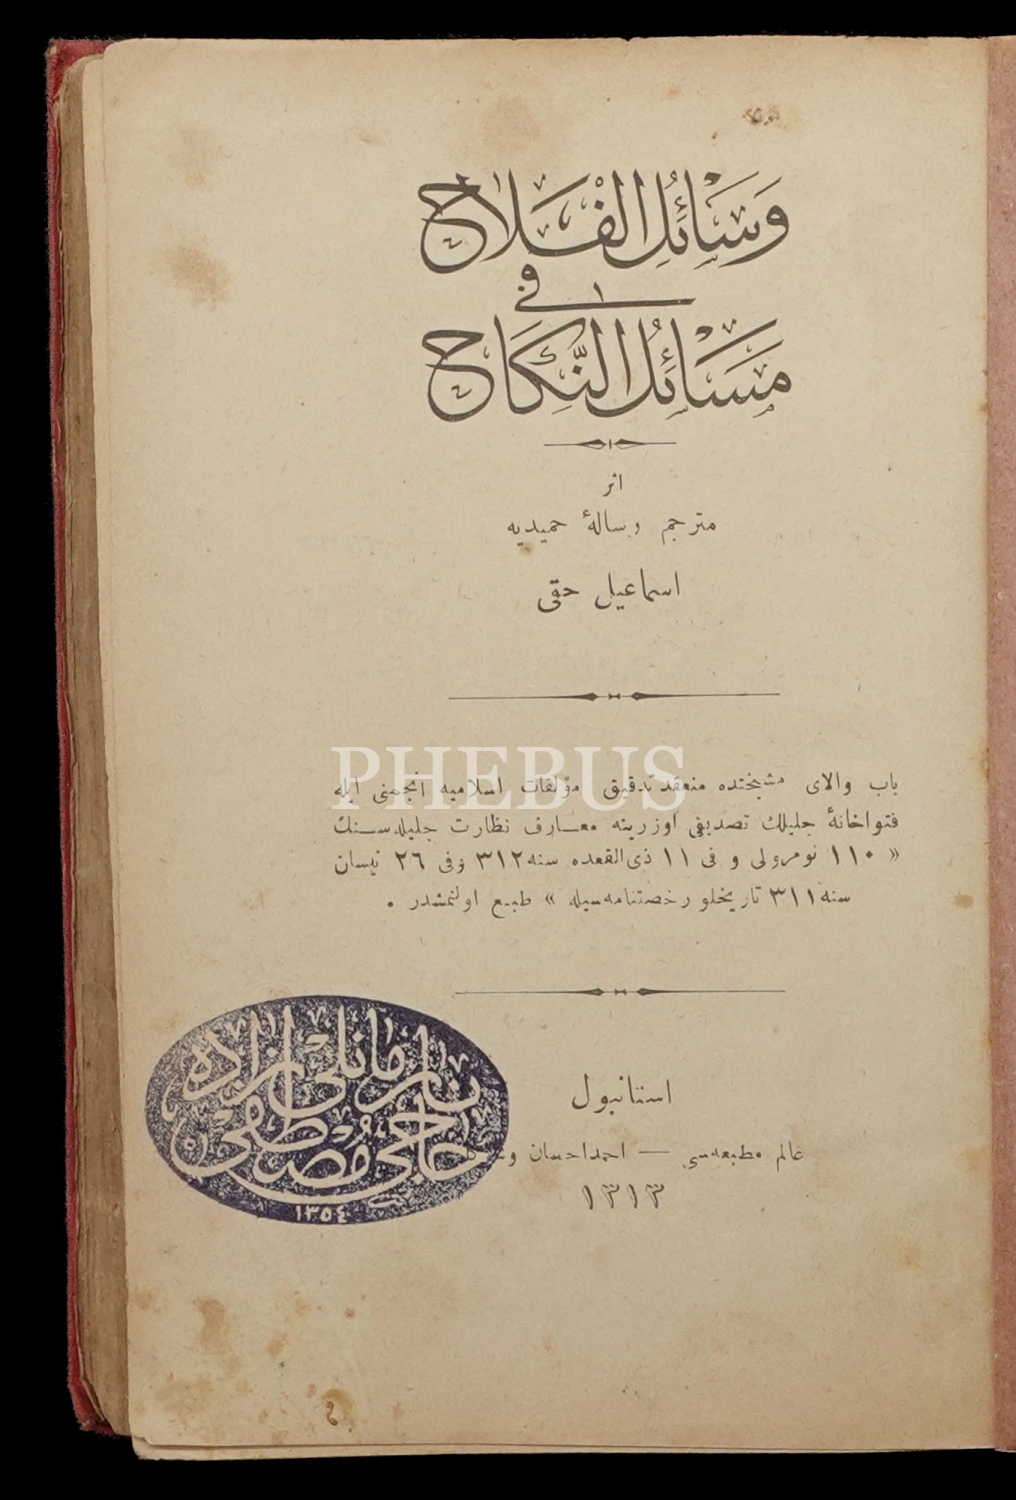 وَسَائِلُ الْفَلَاح
فى
مَسَائِلُ النِّكَاح
اثر
مترجم رسالهٔ حمیدیه
اسماعیل حقی
PHEBUS
باب والای مشیختده منعقد تدقیق مؤلفات اسلامیه انجمنی ایله
فتواخانهٔ جلیلك تصدیقی اوزرینه معارف نظارت جلیله‌سنك
« ۱۱۰ نومرولی و فی ۱۱ ذی‌القعده سنه ۳۱۲ وفی ۲٦ نیسان
سنه ۳۱۱ تاریخلو رخصتنامه‌سیله » طبع اولنمشدر .
استانبول
عالم مطبعه‌سی — احمد احسان
۱۳۱۳
حاجی مصطفی
۱۳٥٤